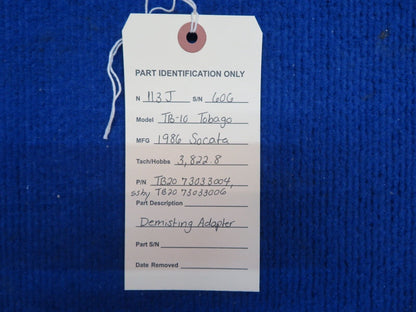 PART IDENTIFICATION ONLY
N 113J S/N 606
Model TB-10 Tobago
MFG 1986 Socata
Tach/Hobbs 3,822.8
P/N TB20 73033004,
ssby TB20 73033006
Part Description
Demisting Adapter
Part S/N
Date Removed